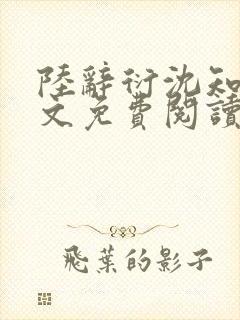 陸辭衍沈知
文免費閱讀
飛葉的影子